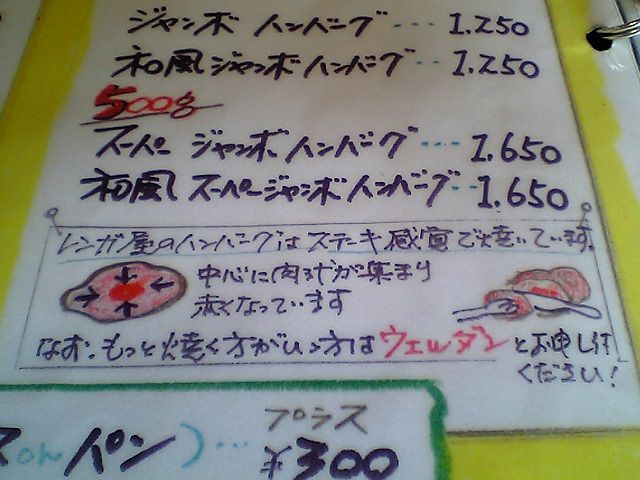 ジャンボ ハンバーグ … 1.250
和風ジャンボハンバーグ … 1.250
500g
スーパー ジャンボ ハンバーグ … 1.650
和風 スーパージャンボハンバーグ … 1.650
レンガ屋のハンバーグはステーキ感覚で焼いています。
中心に肉汁が集まり
赤くなっています
なお、もっと焼く方がいい方は ウェルダン とお申し付
ください!
プラス
onパン)… ¥300